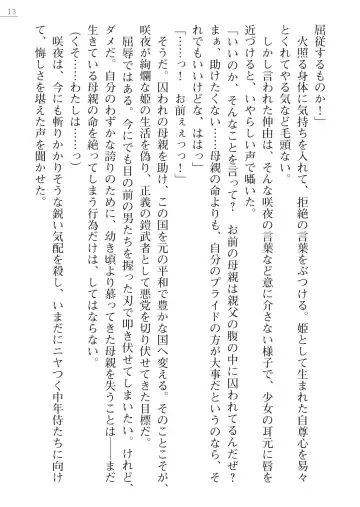 13
屈従するものか！
　火照る身体に気持ちを入れて、拒絶の言葉をぶつける。姫として生まれた自尊心を易々
とくれてやる気など毛頭ない。
　しかし言われた伸由は、そんな咲夜の言葉など意に介さない様子で、少女の耳元に唇を
近づけると、いやらしい声で囁いた。
「いいのか、そんなことを言って？　お前の母親は親父の腹の中に囚われてるんだぜ？
まぁ、助けたくない……母親の命よりも、自分のプライドの方が大事だというのなら、そ
れでもいいけどな、ははっ」
「……っ！　お前ぇぇっっ！」
　そうだ。囚われの母親を助け、この国を元の平和で豊かな国へ変える。そのことこそが、
咲夜が絢爛な姫の生活を偽り、正義の鎧武者として悪党を切り伏せてきた目標だ。
　屈辱ではある。今にでも目の前の男たちを握った刃で叩き伏せてしまいたい。けれど、
ダメだ。自分のわずかな誇りのために、幼き頃より慕ってきた母親を失うことは――まだ
生きている母親の命を絶ってしまう行為だけは、してはならない。
（くそ……わたしは……っ）
　咲夜は、今にも斬りかかりそうな鋭い気配を殺し、いまだにニヤつく中年侍たちに向け
て、悔しさを堪えた声を聞かせた。